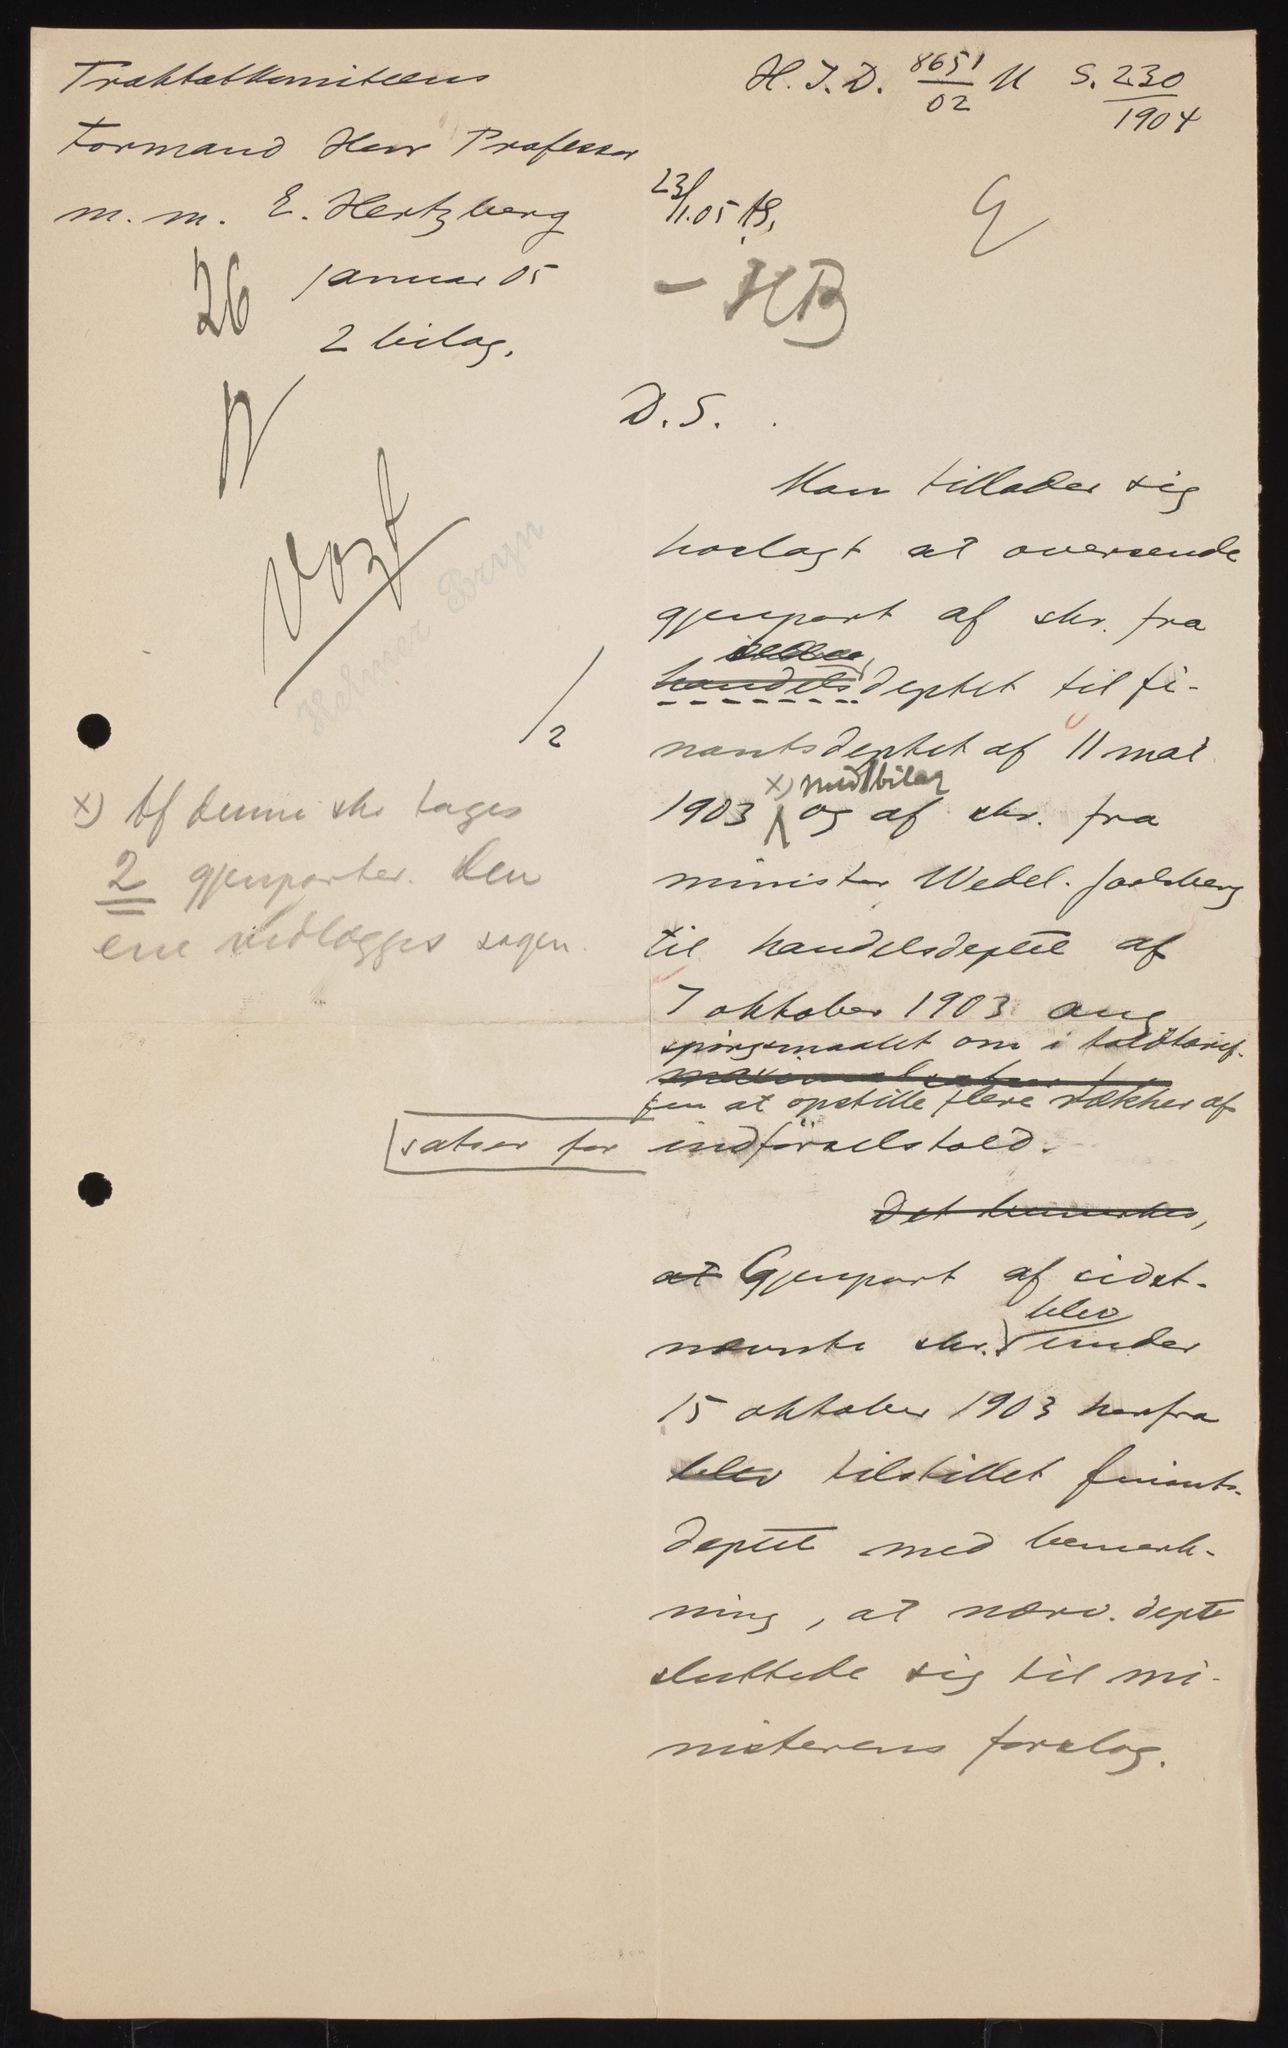 Traktatkomiteens
Formand Herr Professor
m. m. E. Hertzberg
26 januar 05
2 bilag.
Vogt
Helmer Bryn
/2
x) Af denne skr tages
2 gjenparter. Den
ene vedlægges sagen.
H. I. D. 8651/02 M S. 230/1904
23/1.05
HB
D. S.
Man tillader sig
hoslagt at oversende
gjenpart af skr. fra
handelsdeptet til fi-
nantsdeptet af 11 mai
x) med bilag
1903 og af skr. fra
minister Wedel-Jarlsberg
til handelsdeptet af
7 oktober 1903 ang
spørgsmaalet om i toldtarif-
fen at opstille flere rækker af
satser for indførselstold.
Det bemerkes,
at Gjenpart af sidst-
blev
nævnte skr. under
15 oktober 1903 herfra
blev tilstillet finants-
deptet med bemerk-
ning, at nærv. dept
sluttede sig til mi-
nisterens forslag.